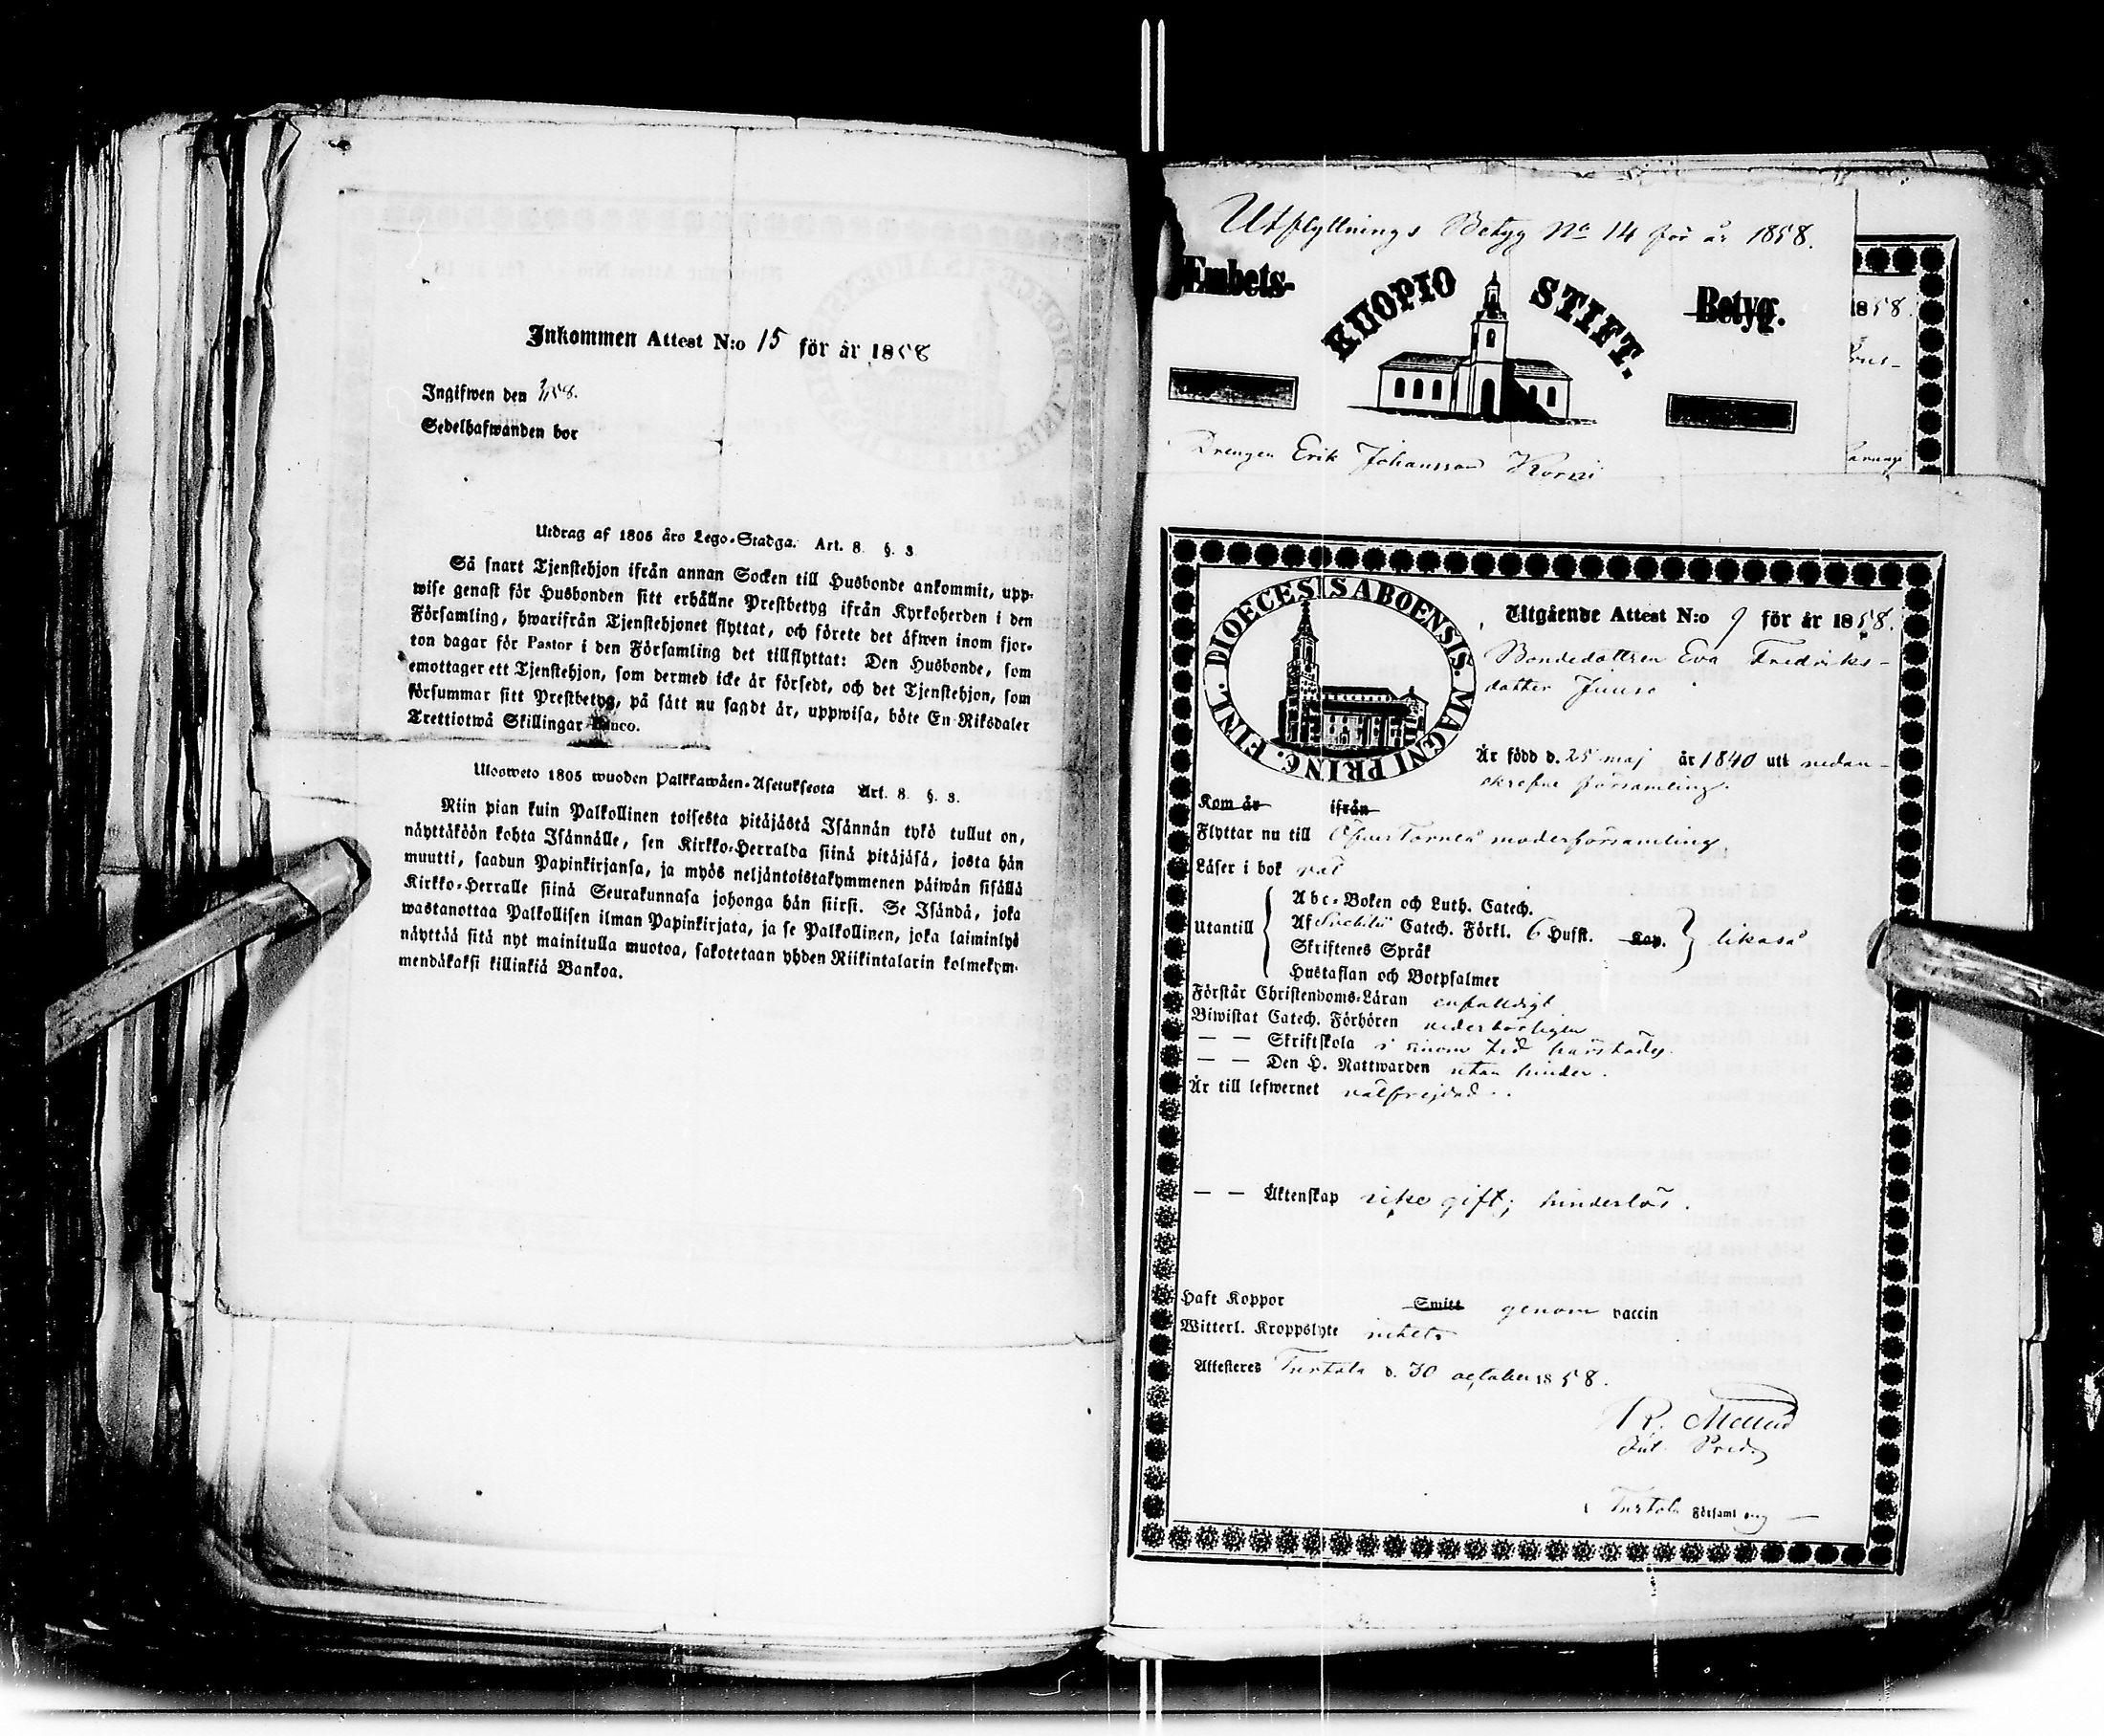 Inkommen Attest N:o 15 för år 1858
Ingifwen den
Sedelhafwanden bor
Utdrag af 1805 års Lego-Stadga. Art. 8. §. 3
Så snart Tjenstehjon ifrån annan Socken till Husbonde ankommit, upp-
wise genast för Husbonden sitt erhållne Prestbetyg ifrån Kyrkoherden i den
Församling, hwarifrån Tjenstehjonet flyttat, och förete det äfwen inom fjor-
ton dagar för Pastor i den Församling det tillflyttat: Den Husbonde, som
emottager ett Tjenstehjon, som dermed icke är försedt, och det Tjenstehjon, som
försummar sitt Prestbetyg, på sätt nu sagdt är, uppwisa, böte En Riksdaler
Trettiotwå Skillingar Banco.
Ulosweto 1805 wuoden Palkkawäen-Asetuksesta Art. 8. §. 3.
Niin pian kuin Palkollinen toisesta pitäjästä Isännän tykö tullut on,
näyttäköön kohta Isännälle, sen Kirkko-Herralda siinä pitäjäsä, josta hän
muutti, saadun Papinkirjansa, ja myös neljäntoistakymmenen päiwän sisällä
Kirkko-Herralle siinä Seurakunnasa johonga hän siirsi. Se Isändä, joka
wastanottaa Palkollisen ilman Papinkirjata, ja se Palkollinen, joka laiminlyö
näyttää sitä nyt mainitulla muotoa, sakotetaan yhden Riikintalarin kolmekym-
mendäkaksi killinkiä Bankoa.
Utflyttnings Betyg No 14 för år 1858.
Embets- KUOPIO STIFT. Betyg.
Drengen Erik Johansson Korpi
1858.
DIOECESIS ABOENSIS. MAGNI PRINC. FINL.
Utgående Attest N:o 9 för år 1858.
Bondedottren Eva Fredriks-
dotter Juuso
Är född d. 25 maj år 1840 utt nedan-
skrefne församling.
Kom år ifrån
Flyttar nu till Öfver Torneå moderförsamling.
Läser i bok väl
Utantill
Abc-Boken och Luth. Catech.
Af Svebilii Catech. Förkl. 6 Hufst. Kap.
Skriftenes Språk
Hustaflan och Botpsalmer
likaså
Förstår Christendoms-Läran enfaldigt
Biwistat Catech. Förhören vederbörligen
— — Skriftskola i sinom tid
— — Den H. Nattwarden utan hinder.
Är till lefwernet välfrejdad.
— — Äktenskap icke gift; hinderlös.
Haft Koppor Smitt genom vaccin
Witterl. Kroppslyte intet
Attesteras Turtola d. 30 october 1858.
R.
Turtola Församling